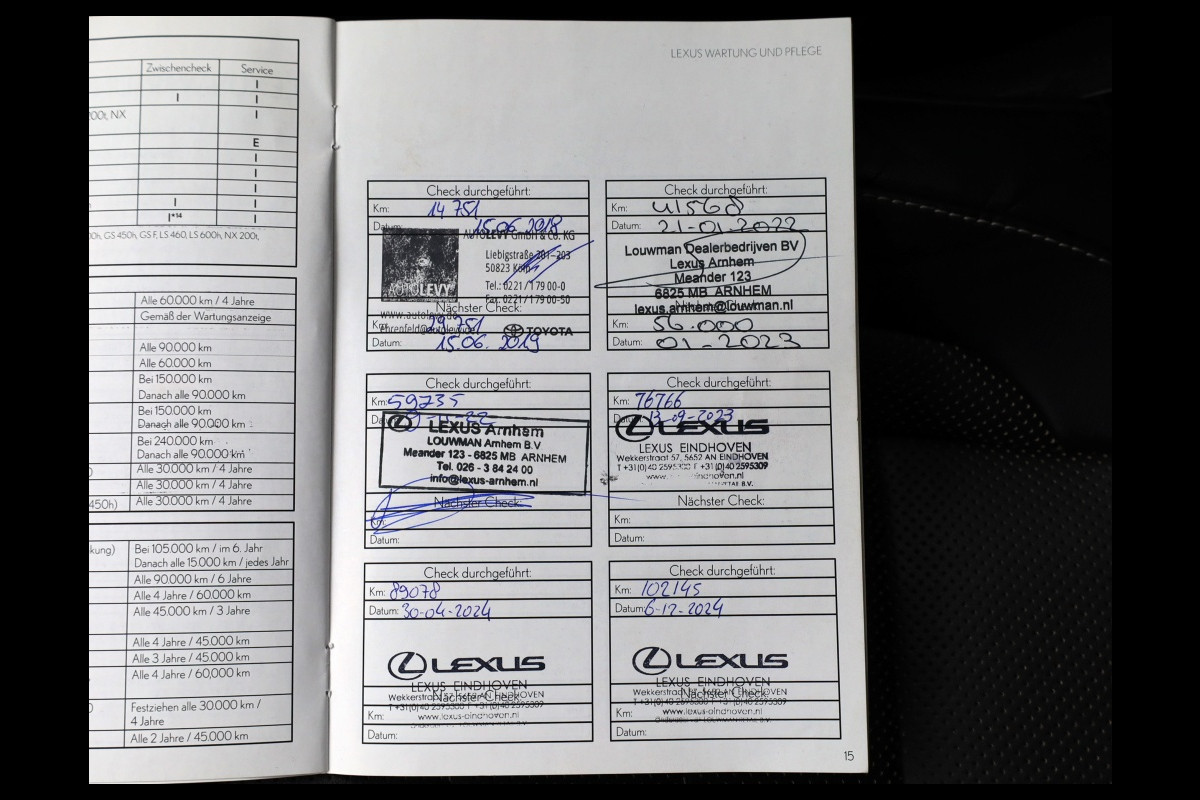 LEXUS WARTUNG UND PFLEGE
Zwischencheck
Service
I
I I
200t, NX I
E
I
I
I
I I
I*14 I
GS 450h, GS F, LS 460, LS 600h, NX 200t,
Alle 60.000 km / 4 Jahre
Gemäß der Wartungsanzeige
Alle 90.000 km
Alle 60.000 km
Bei 150.000 km
Danach alle 90.000 km
Bei 150.000 km
Danach alle 90.000 km
Bei 240.000 km
Danach alle 90.000 km
Alle 30.000 km / 4 Jahre
Alle 30.000 km / 4 Jahre
450h) Alle 30.000 km / 4 Jahre
kung) Bei 105.000 km / im 6. Jahr
Danach alle 15.000 km / jedes Jahr
Alle 90.000 km / 6 Jahre
Alle 4 Jahre / 60.000 km
Alle 45.000 km / 3 Jahre
Alle 4 Jahre / 45.000 km
Alle 3 Jahre / 45.000 km
Alle 4 Jahre / 60,000 km
Festziehen alle 30.000 km /
4 Jahre
Alle 2 Jahre / 45.000 km
Check durchgeführt:
Km: 14 751
Datum: 15.06.2018
AUTOLEVY GmbH & Co. KG
Liebigstraße 201-203
50823 Köln
AUTOLEVY
Tel.: 0221/1 79 00-0
Fax. 0221/1 79 00-50
Nächster Check:
Km: 29.751
TOYOTA
Datum: 15.06.2019
Check durchgeführt:
Km: 41568
Datum: 21-01.2022
Louwman Dealerbedrijven BV
Lexus Arnhem
Meander 123
6825 MB ARNHEM
lexus.arnhem@louwman.nl
Km: 56.000
Datum: 01-2023
Check durchgeführt:
Km: 59735
LEXUS Arnhem
LOUWMAN Arnhem B.V
Meander 123 - 6825 MB ARNHEM
Tel. 026 - 3 84 24 00
info@lexus-arnhem.nl
Nächster Check:
Km:
Datum:
Check durchgeführt:
Km: 76766
Datum: 13-09-2023
LEXUS
LEXUS EINDHOVEN
Wekkerstraat 57, 5652 AN EINDHOVEN
F +31(0)40 2595309
Nächster Check:
Km:
Datum:
Check durchgeführt:
Km: 89078
Datum: 30-04-2024
LEXUS
LEXUS EINDHOVEN
Nächster Check:
www.lexus-eindhoven.nl
Km:
Datum:
Check durchgeführt:
Km: 102145
Datum: 6-12-2024
LEXUS
LEXUS EINDHOVEN
Nächster Check:
www.lexus-eindhoven.nl
Km:
Datum:
15